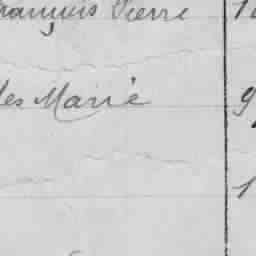 François Pierre 1
les Marie 9
1